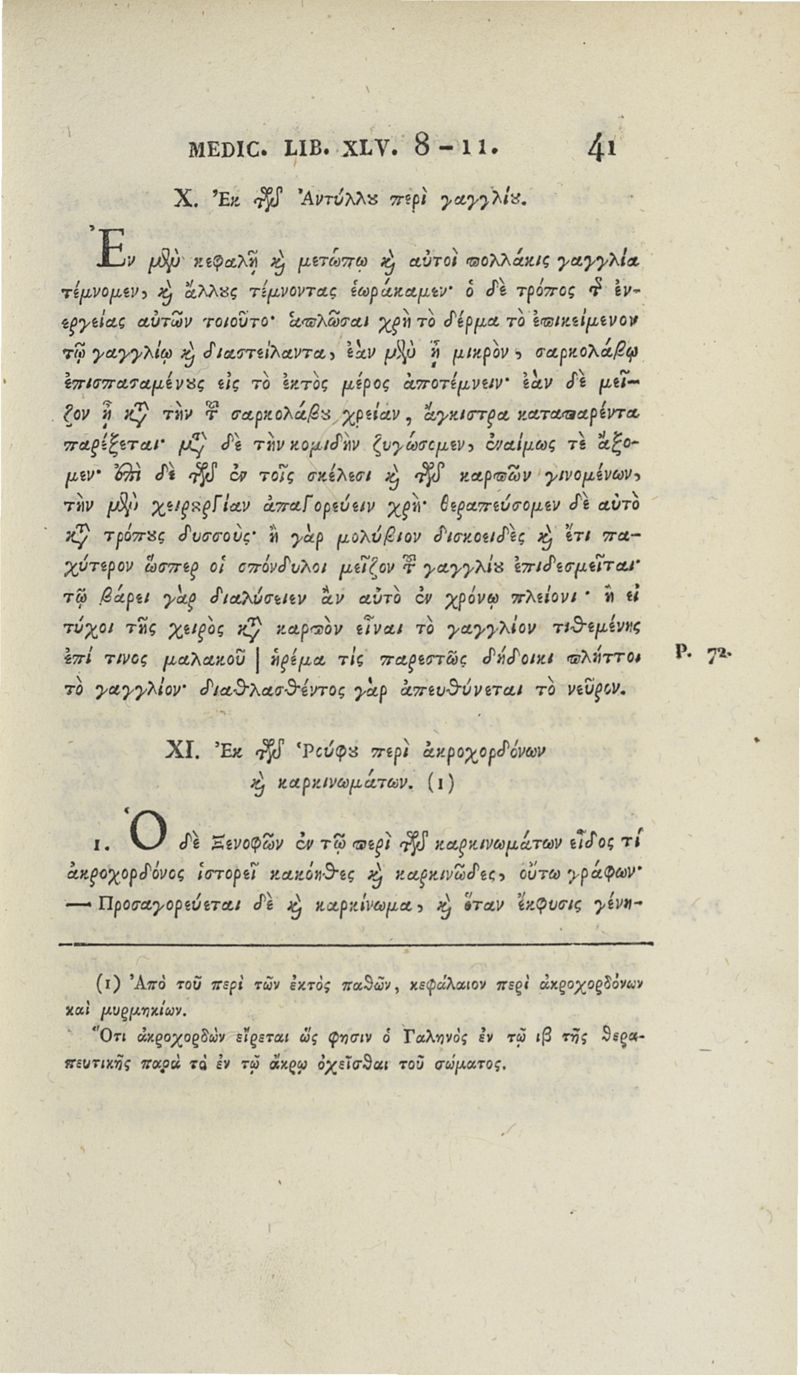 MEDIC. LIB. XLV. 8 – 11. 41
X. Ἐκ τῶν Ἀντύλλου περὶ γαγγλίου.
Ἐν μὲν κεφαλῇ καὶ μετώπῳ καὶ αὐτοὶ πολλάκις γαγγλία
τέμνομεν, καὶ ἄλλους τέμνοντας ἑωράκαμεν· ὁ δὲ τρόπος τῆς ἐν-
εργείας αὐτῶν τοιοῦτο· ἁπλῶσαι χρὴ τὸ δέρμα τὸ ἐπικείμενον
τῷ γαγγλίῳ καὶ διαστείλαντα, ἐὰν μὲν ᾖ μικρὸν, σαρκολάβῳ
ἐπισπασαμένους εἰς τὸ ἐκτὸς μέρος ἀποτέμνειν· ἐὰν δὲ μεῖ–
ζον ᾖ κατὰ τὴν τοῦ σαρκολάβου χρείαν, ἄγκιστρα καταπαρέντα
παρέξεται· μετὰ δὲ τὴν κομιδὴν ζυγώσομεν, ἐναίμως τὲ ἄξο-
μεν· ἐπὶ δὲ τῶν ἐν τοῖς σκέλεσι καὶ τῶν καρπῶν γινομένων,
τὴν μὲν χειρουργίαν ἀπαγορεύειν χρὴ· θεραπεύσομεν δὲ αὐτὸ
κατὰ τρόπους δυσσούς· ἢ γὰρ μολύβιον δισκοειδὲς καὶ ἔτι πα–
χύτερον ὥσπερ οἱ σπόνδυλοι μεῖζον τοῦ γαγγλίου ἐπιδεσμεῖται·
τῷ βάρει γὰρ διαλύσειεν ἂν αὐτὸ ἐν χρόνῳ πλείονι · ἢ εἰ
τύχοι τῆς χειρὸς κατὰ καρπὸν εἶναι τὸ γαγγλίον τιθεμένης
ἐπί τινος μαλακοῦ | ἠρέμα τίς παρεστῶς δήδοικι πλήττοι P. 72.
τὸ γαγγλίον· διαθλασθέντος γὰρ ἀπευθύνεται τὸ νεῦρον.
XI. Ἐκ τῶν Ῥούφου περὶ ἀκροχορδόνων
καὶ καρκινωμάτων. (1)
1. Ὁ δὲ Ξενοφῶν ἐν τῷ περὶ τῶν καρκινωμάτων εἶδος τί
ἀκροχορδόνος ἱστορεῖ κακόηθες καὶ καρκινῶδες, οὕτω γράφων·
— Προσαγορεύεται δὲ καὶ καρκίνωμα, καὶ ὅταν ἔκφυσις γένη–
(1) Ἀπὸ τοῦ περὶ τῶν ἐκτὸς παθῶν, κεφάλαιον περὶ ἀκροχορδόνων
καὶ μυρμηκίων.
Ὅτι ἀκροχορδὼν εἴρεται ὥς φησιν ὁ Γαληνὸς ἐν τῷ ιβ τῆς θερα-
πευτικῆς παρὰ τὸ ἐν τῷ ἄκρῳ ὀχεῖσθαι τοῦ σώματος.